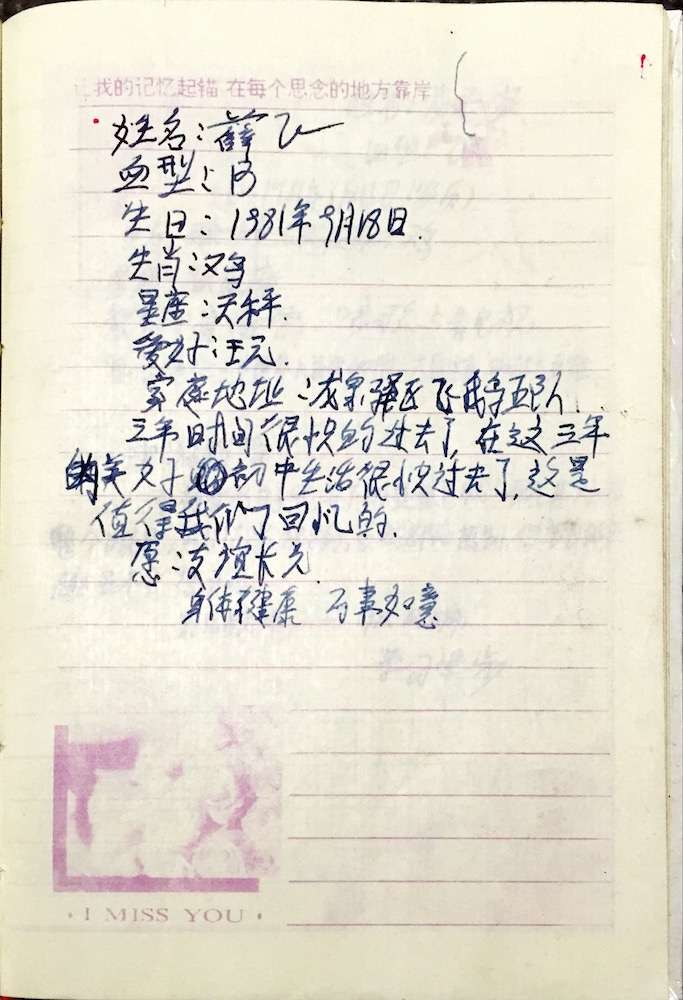 让我的记忆起锚 在每个思念的地方靠岸
姓名:薛飞
血型:B
生日:1981年9月18日.
生肖:鸡
星座:天秤.
爱好:玩.
家庭地址:强飞五队.
三年时间很快的过去了,在这三年
美好初中生活很快过去了,这是
值得我们回忆的.
愿:友谊长久
身体健康 万事如意
I MISS YOU